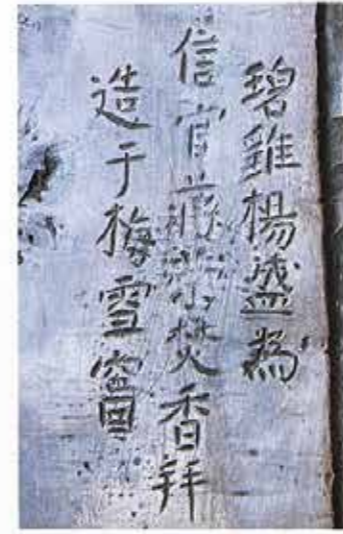 碧雞楊盛為
信官焚香拜
造于梅雪窗